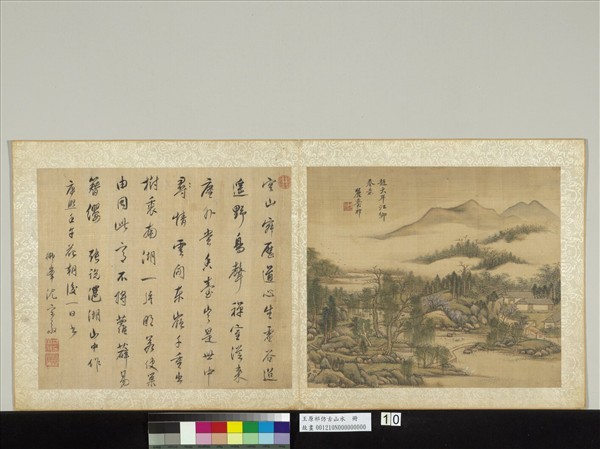 空山寂歷道心生虛谷迢
遙野鳥聲 禪室從來
塵外賞香臺豈是世中
情雲間東嶺千重出
樹裏南湖一片明若使巢
由同此意不將蘿薜易
簪纓 張說㴩湖山中作
康熙壬午花朝後一日書
沈宗
趙大年江鄉
春
麓臺祁
王原祁仿古山水 冊
故畫 001210N000000000
10